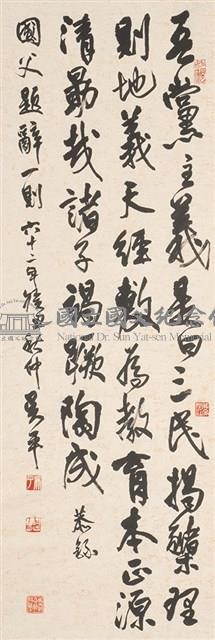 吾黨主義是曰三民揭櫫理
則地義天經敷為教育本正源
清勖哉諸子竭蹶陶成 恭錄
國父題辭一則 六十二年癸丑秋仲 吳平
國立國父紀念館
National Dr. Sun Yat-sen Memorial